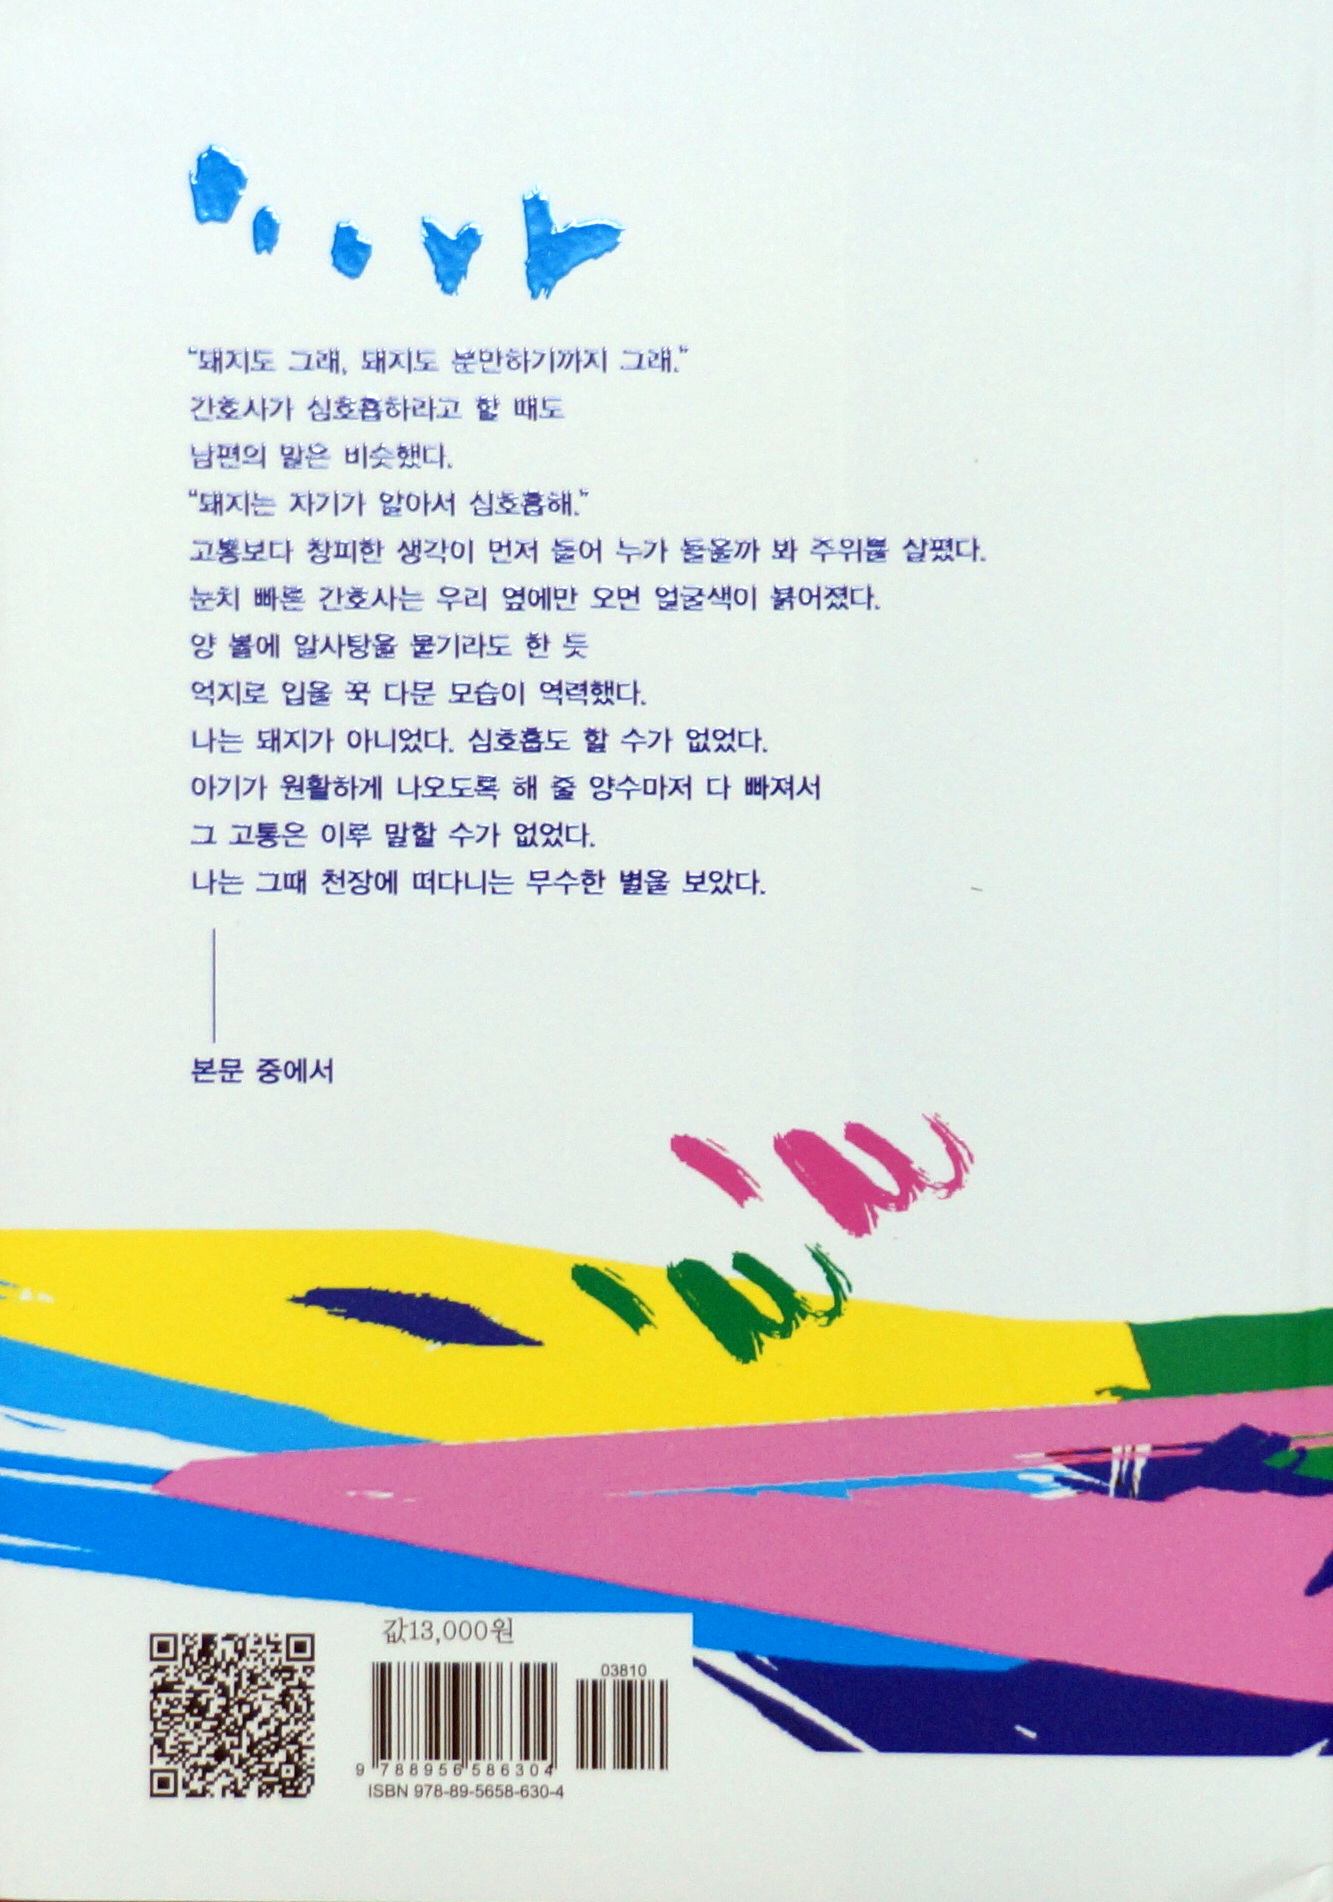 “돼지도 그래, 돼지도 분만하기까지 그래.”
간호사가 심호흡하라고 할 때도
남편의 말은 비슷했다.
“돼지는 자기가 알아서 심호흡해.”
고통보다 창피한 생각이 먼저 들어 누가 들을까 봐 주위를 살폈다.
눈치 빠른 간호사는 우리 옆에만 오면 얼굴색이 붉어졌다.
양 볼에 알사탕을 물기라도 한 듯
억지로 입을 꾹 다문 모습이 역력했다.
나는 돼지가 아니었다. 심호흡도 할 수가 없었다.
아기가 원활하게 나오도록 해 줄 양수마저 다 빠져서
그 고통은 이루 말할 수가 없었다.
나는 그때 천장에 떠다니는 무수한 별을 보았다.
본문 중에서
값13,000원
03810
9 788956 586304
ISBN 978-89-5658-630-4